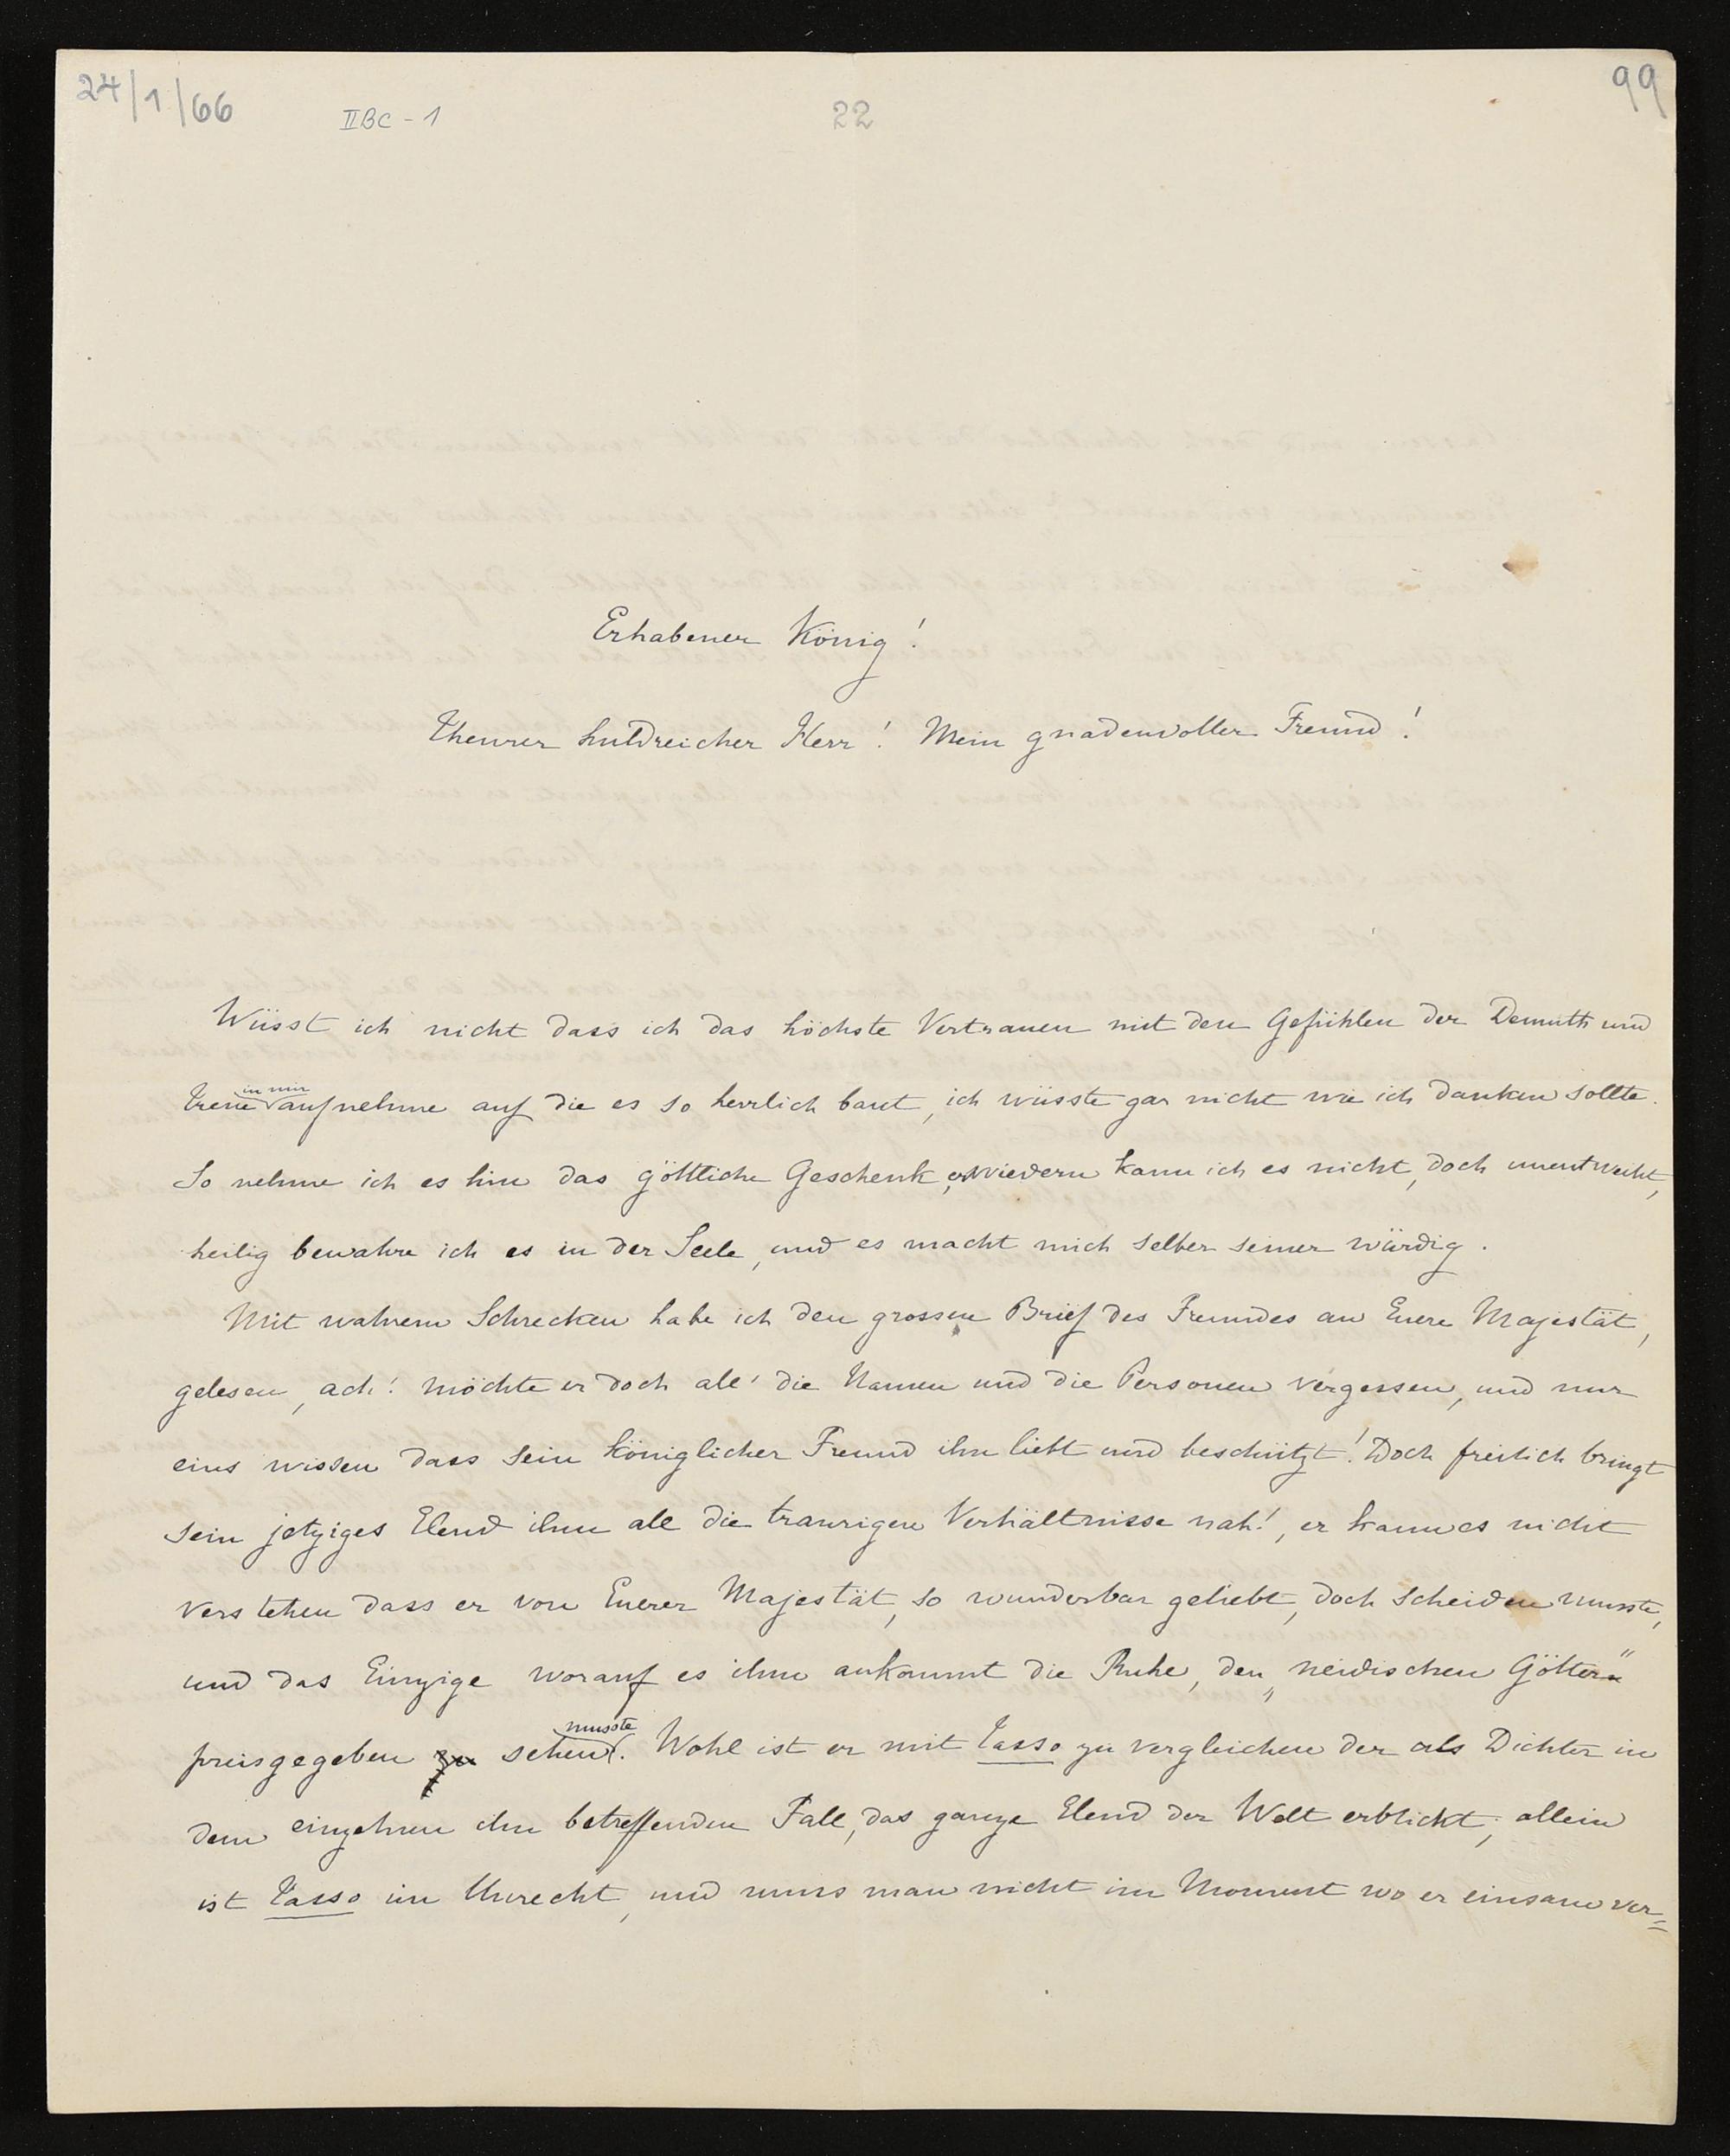 24/1/66
IIBC-1
22
99
Erhabener König!
Theurer huldreicher Herr! Mein gnadenvoller Freund!
Wüsst ich nicht dass ich das höchste Vertrauen mit den Gefühlen der Demuth und
in mir
Treue aufnehme auf die es so herrlich baut, ich wüsste gar nicht wie ich danken sollte.
So nehme ich es hin das göttliche Geschenk, erwiedern kann ich es nicht, doch unentweiht,
heilig bewahre ich es in der Seele, und es macht mich selber seiner würdig.
Mit wahrem Schrecken habe ich den grossen Brief des Freundes an Euere Majestät,
gelesen, ach! möchte er doch all' die Namen und die Personen vergessen, und nur
eins wissen dass sein königlicher Freund ihn liebt und beschützt! Doch freilich bringt
sein jetziges Elend ihm all die traurigen Verhältnisse nah!, er kann es nicht
verstehen dass er von Euerer Majestät, so wunderbar geliebt, doch scheiden musste,
und das Einzige worauf es ihm ankommt die Ruhe, den „neidischen Göttern"
musste
preisgegeben zu sehen. Wohl ist er mit Tasso zu vergleichen der als Dichter in
dem einzelnen ihn betreffenden Fall, das ganze Elend der Welt erblickt; allein
ist Tasso im Unrecht, und muss man nicht im Moment wo er einsam ver=